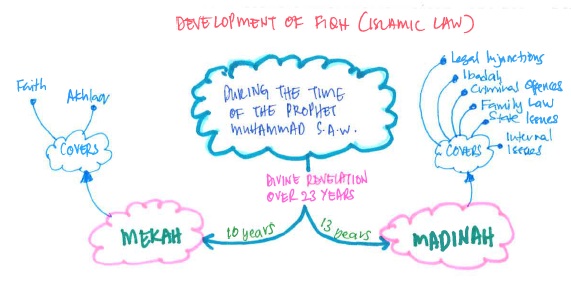 DEVELOPMENT OF FIQH (ISLAMIC LAW)
DURING THE TIME
OF THE PROPHET
MUHAMMAD S.A.W.
DIVINE REVELATION
OVER 23 YEARS
10 years
13 years
MEKAH
COVERS
Faith
Akhlaq
MADINAH
COVERS
Legal Injunctions
Ibadah
Criminal Offences
Family Law
State Issues
Internal
Issues